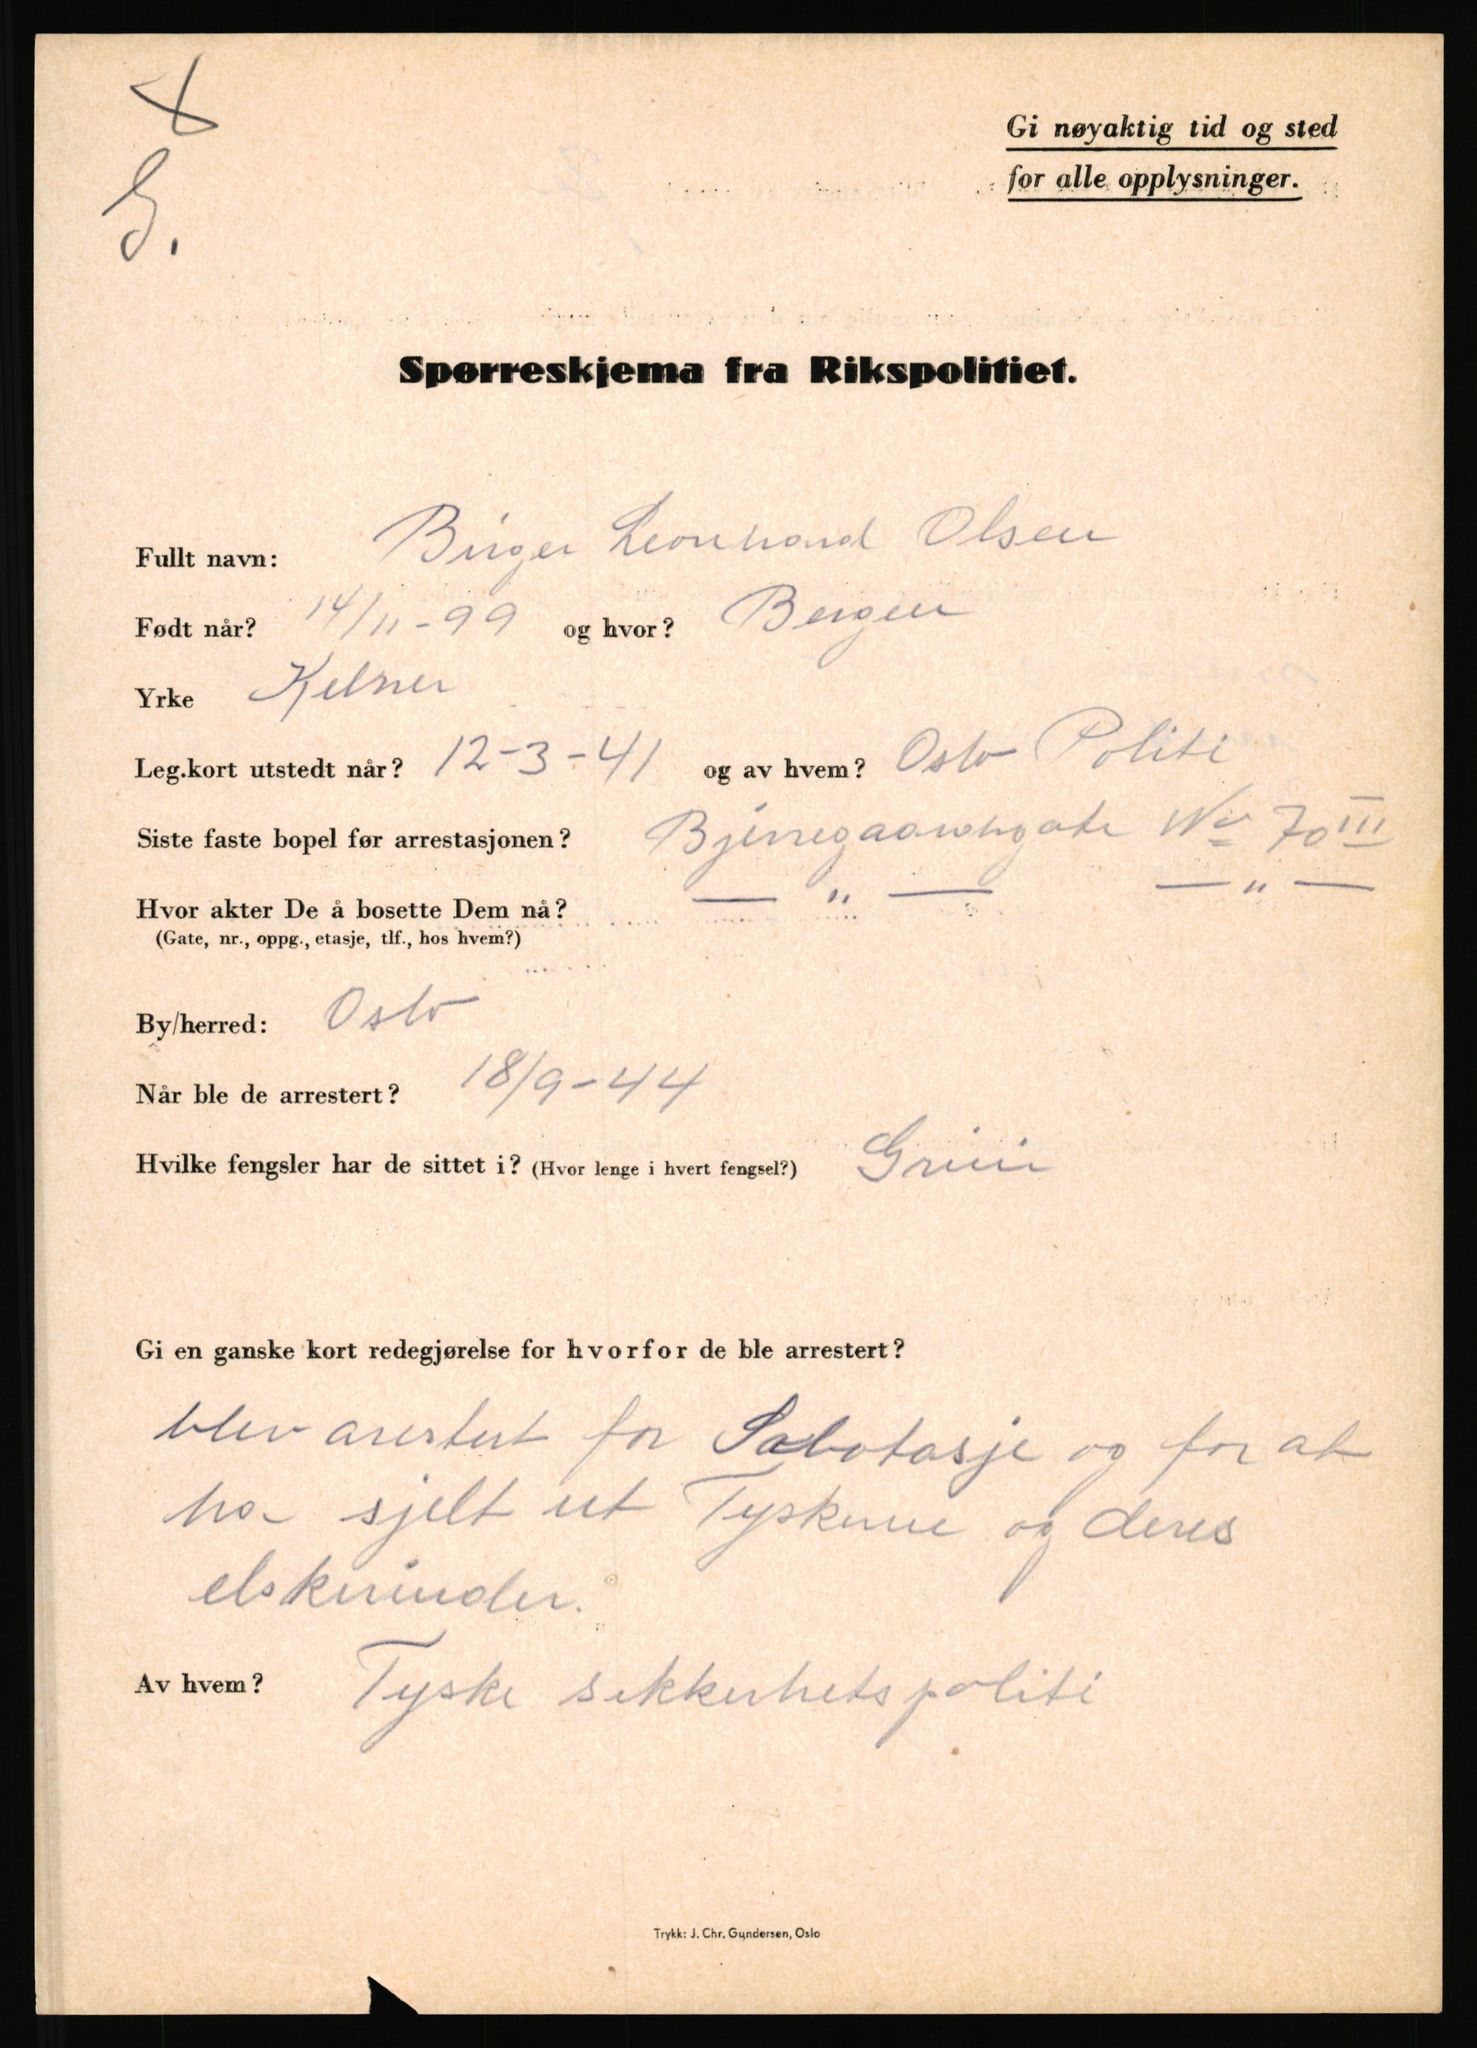 G.
Gi nøyaktig tid og sted
for alle opplysninger.
Spørreskjema fra Rikspolitiet.
Fullt navn: Birger Leonhard Olsen
Født når? 14/11-99 og hvor? Bergen
Yrke Kelner
Leg.kort utstedt når? 12-3-41 og av hvem? Oslo Politi
Siste faste bopel før arrestasjonen? Bjerregaardsgate No 70 III
Hvor akter De å bosette Dem nå? — " — — " —
(Gate, nr., oppg., etasje, tlf., hos hvem?)
By/herred: Oslo
Når ble de arrestert? 18/9-44
Hvilke fengsler har de sittet i? (Hvor lenge i hvert fengsel?) Grini
Gi en ganske kort redegjørelse for hvorfor de ble arrestert?
blev arestert for Sabotasje og for at
ha sjelt ut Tyskerne og deres
elskerinder.
Av hvem? Tyske sikkerhetspoliti
Trykk: J. Chr. Gundersen, Oslo